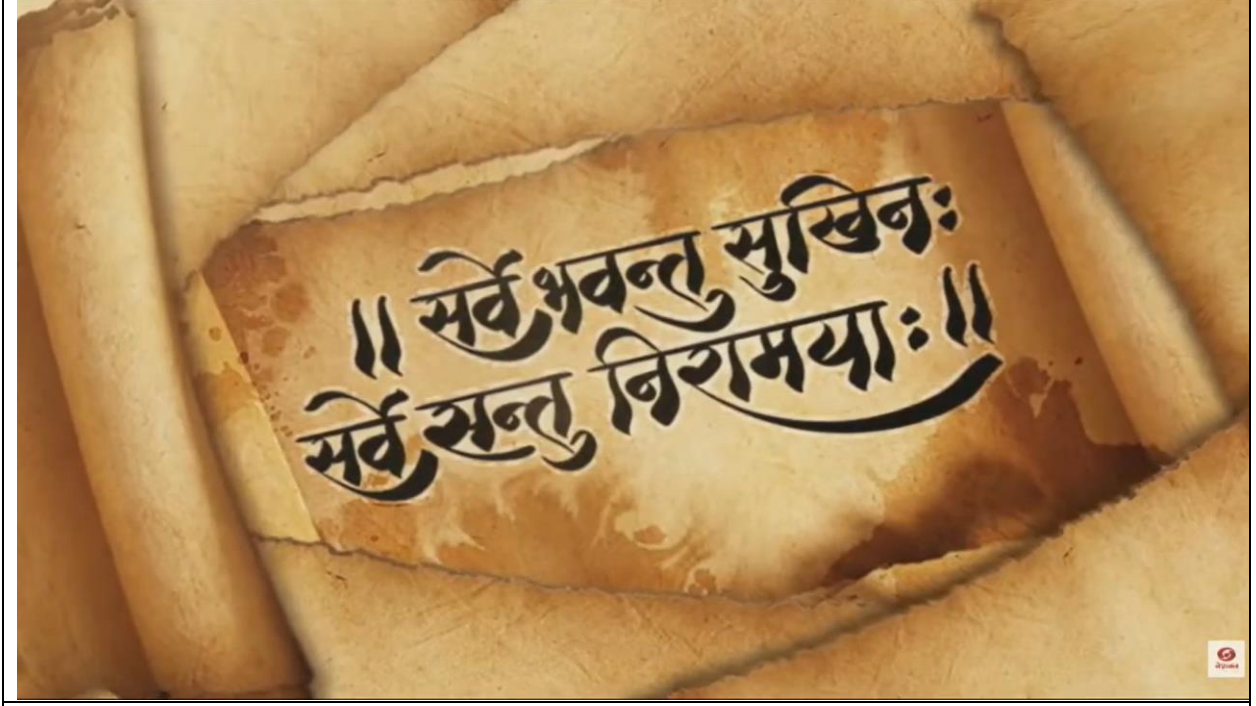 ॥ सर्वे भवन्तु सुखिनः
सर्वे सन्तु निरामयाः ॥